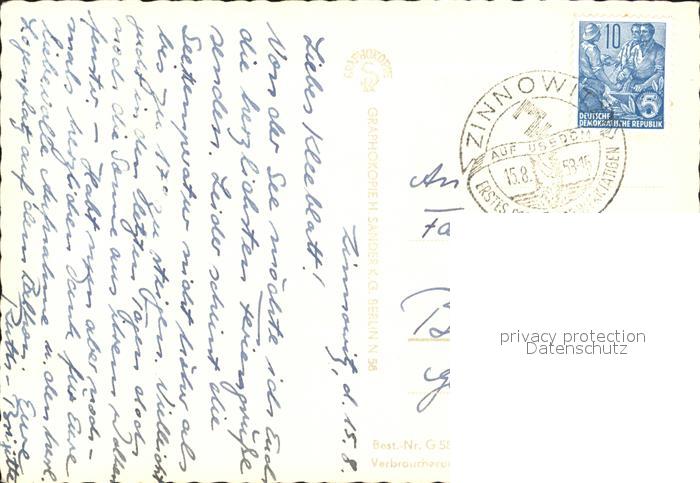 Zinnowitz, d. 15.8.
Liebes Kleeblatt!
Von der See möchte ich Euch
die herzlichsten Feriengrüße
senden. Leider scheint die
Seetemperatur nicht höher als
bis zu 17° zu steigen. Vielleicht
guckt in den letzten Tagen doch
noch die Sonne aus ihrem
fenster – Habt nun aber noch-
mals herzlichen Dank für Eure
liebevolle Aufnahme u. den
Logenplatz auf dem Balkon. Eure
GRAPHOKOPIE
GRAPHOKOPIE H. SANDER K.G. BERLIN N 58
An
Fa
Best.-Nr. G 55
Verbraucher
10
5
DEUTSCHE
DEMOKRATISCHE REPUBLIK
ZINNOWITZ
AUF USEDOM
15.8. 58-16
privacy protection
Datenschutz